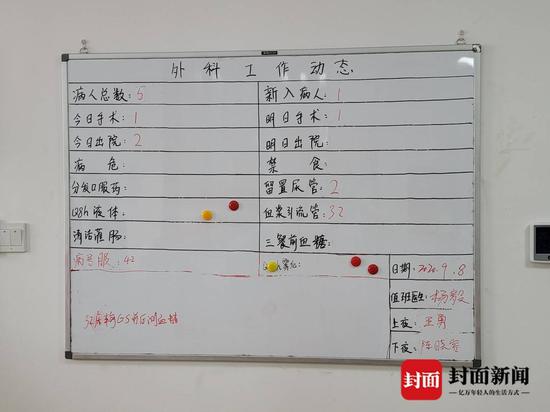 外科工作动态
病人总数：5 新入病人：1
今日手术：1 明日手术：1
今日出院：2 明日出院：
病 危： 禁 食：
分发口服药： 留置尿管：2
Q8h液体： 血浆引流管：32
清洁灌肠： 三餐前血糖：
病号服：42 日期：2020.9.8
值班医生：杨毅
上夜：王勇
下夜：陈晓蓉
封面 封面新闻
亿万年轻人的生活方式